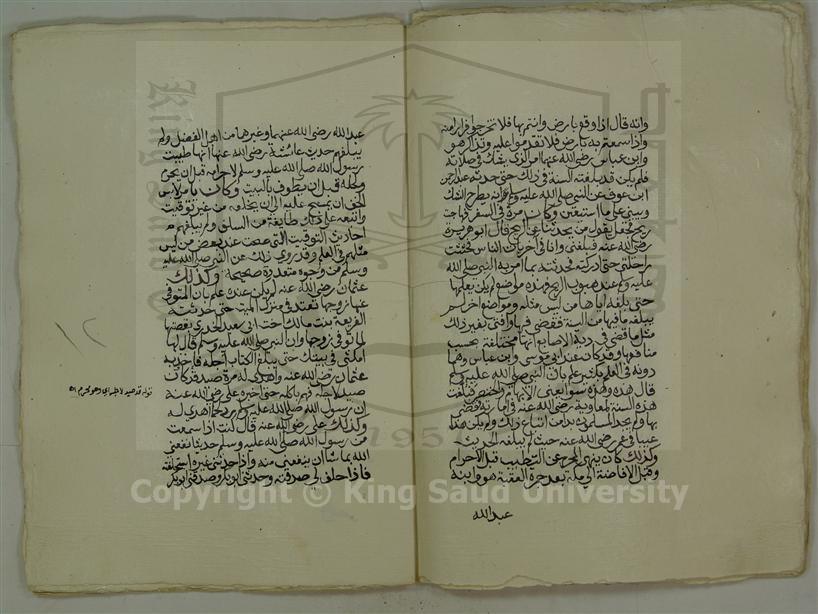 وانه قال اذا وقع بارض وانتم بها فلا تخرجوا فرارا منه
واذا سمعتم به بارض فلا تقدموا عليه وتذاكر هو
وابن عباس رضي الله عنهما امر الذي يشك في صلاته
فلم يكن قد بلغته السنة في ذلك حتى حدثه عبد الرحمن
ابن عوف عن النبي صلى الله عليه وسلم انه يطرح الشك
ويبني على ما استيقن وكان مرة في السفر فهاجت
ريح فجعل يقول من يحدثنا عن الريح قال ابو هريرة
رضي الله عنه فبلغني وانا في اخريات الناس فحثثت
راحلتي حتى ادركته فحدثته بما امر به النبي صلى الله
عليه وسلم عند هبوب الريح فهذه مواضع لم يكن يعلمها
حتى بلغه اياها من ليس مثله ومواضع اخر لم
يبلغه ما فيها من السنة فقضى فيها او افتى بغير ذلك
مثل ما قضى في دية الاصابع انها مختلفة بحسب
منافعها وقد كان عند ابي موسى وابن عباس وهما
دونه في العلم بكثير علم بان النبي صلى الله عليه وسلم
قال هذه وهذه سوا يعني الابهام والخنصر فبلغت
هذه السنة لمعاوية رضي الله عنه في امارته فقضى
بها ولم يجد المسلمون بدا من اتباع ذلك ولم يكن هذا
عيبا في عمر رضي الله عنه حيث لم يبلغه الحديث
وكذلك كان ينهى المحرم عن التطيب قبل الاحرام
وقبل الافاضة الى مكة بعد جمرة العقبة هو وابنه
عبد الله
عبد الله رضي الله عنهما وغيرهما من اهل الفضل ولم
يبلغهم حديث عائشة رضي الله عنها انها طيبت
رسول الله صلى الله عليه وسلم لاحرامه قبل ان يحرم
ولحله قبل ان يطوف بالبيت وكان يامر لابس
الخف ان يمسح عليه الى ان يخلعه من غير توقيت
واتبعه على ذلك طايفة من السلف ولم يبلغهم
احاديث التوقيت التي صحت عند بعض من ليس
مثلهم في العلم وقد روي ذلك عن النبي صلى الله عليه
وسلم من وجوه متعددة صحيحة وكذلك
عثمان رضي الله عنه لم يكن عنده علم بان المتوفى
عنها زوجها تعتد في منزل الميت حتى حدثته
الفريعة بنت مالك اخت ابي سعيد الخدري بقصتها
لما توفي زوجها وان النبي صلى الله عليه وسلم قال لها
امكثي في بيتك حتى يبلغ الكتاب اجله فاخذ به
عثمان رضي الله عنه واهدي له مرة صيد قد كان
صيد لاجله فهم باكله حتى اخبره علي رضي الله عنه
ان رسول الله صلى الله عليه وسلم رد لحما اهدي له
وكذلك علي رضي الله عنه قال كنت اذا سمعت
من رسول الله صلى الله عليه وسلم حديثا نفعني
الله بما شا ان ينفعني منه واذا حدثني غيره استحلفته
فاذا حلف لي صدقته وحدثني ابو بكر وصدق ابو بكر
قوله قد صيد لاجله اي وهو محرم اه
Copyright © King Saud University
1957